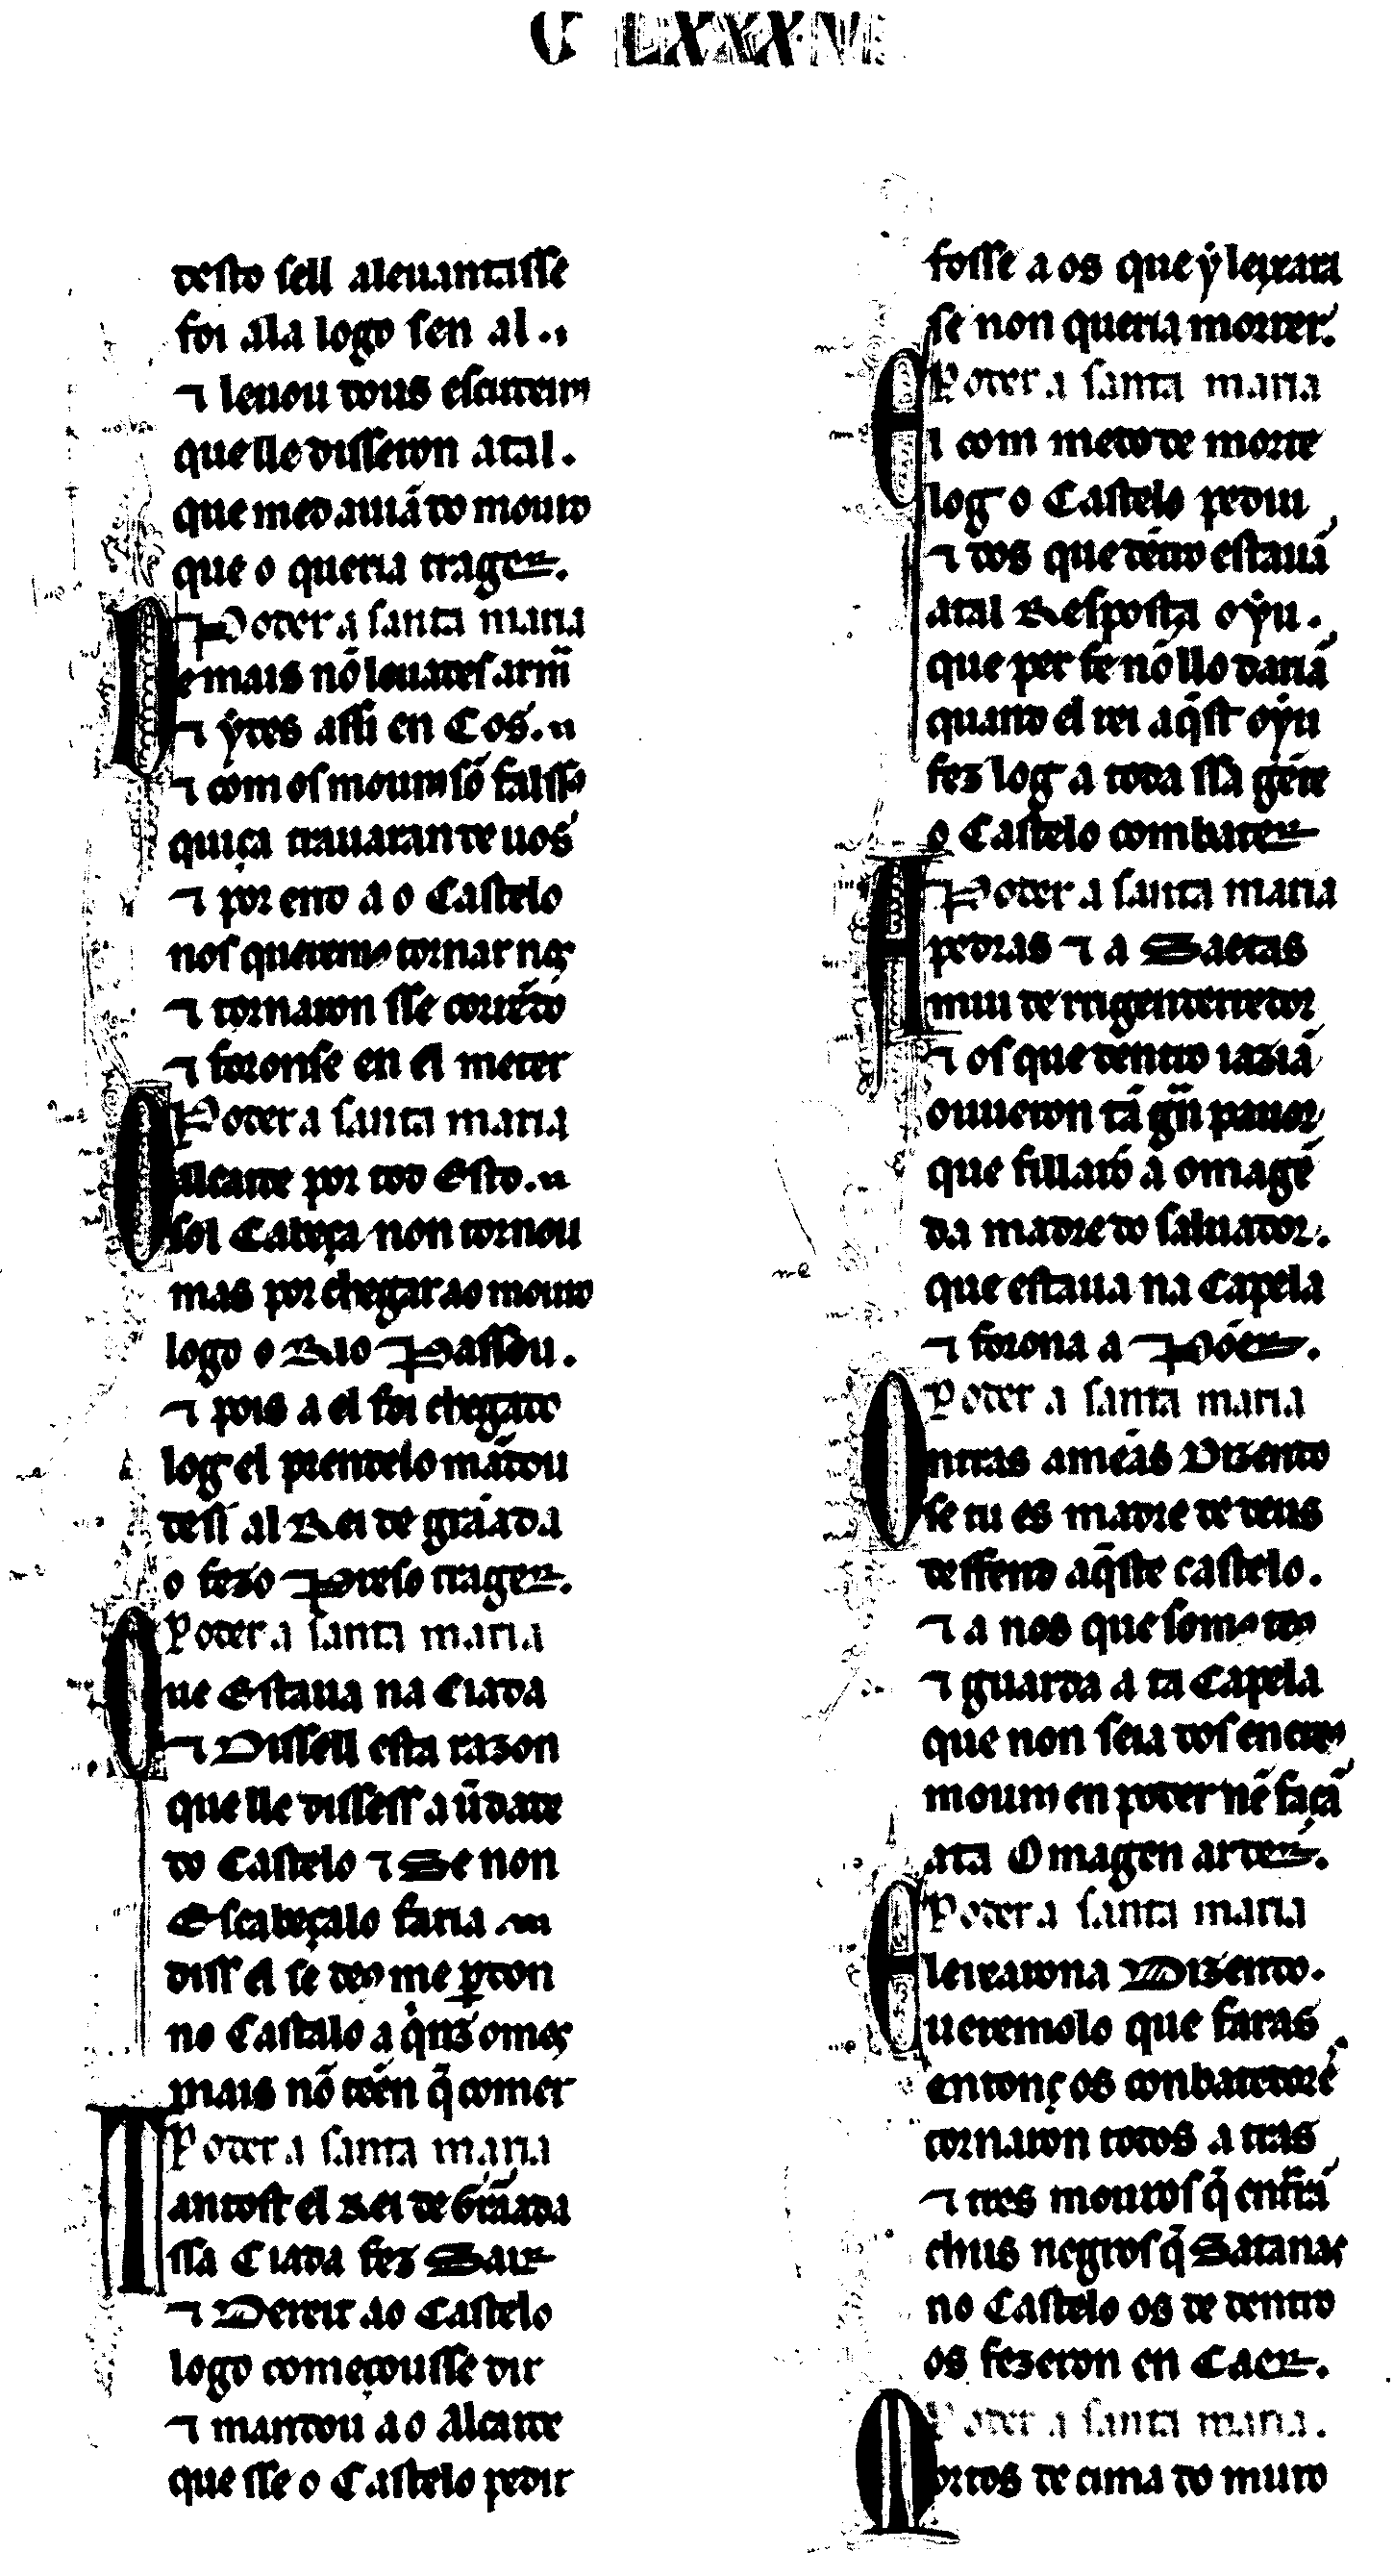 C LXXXV
desto sell aleuantasse
foi ala logo sen al..
⁊ leuou dous escudeiros
que lle disseron atal.
que medauiã do mouro
que o queria trager.
Poder a santa maria
e mais nõ leuades arm̃
⁊ ydes assi en Cos.
⁊ com os mouros sõ falssos
quiça trauaran de uos
⁊ por endo a o Castelo
nos queremos tornar nos
⁊ tornaron sse corrẽdo
⁊ foronse en el meter
Poder a santa maria
O alcaide por tod Esto.
sol Cabeça non tornou
mas por chegar ao mouro
logo o Rio Passou.
⁊ pois a el foi chegado
log el prendelo mãdou
desi al Rei de graãda
o fezo Preso trager.
Poder a santa maria
Que Estaua na Ciada
⁊ Dissell esta razon
que lle dissess a ũdade
do Castelo ⁊ Se non
Escabeçalo faria
diss el se deus me perdon
no Castalo a quĩz omes
mais nõ teẽn q̃ comer
Poder a santa maria
Tantost el Rei de Graãda
ssa Ciada fez Sair
⁊ Dereit ao Castelo
logo começousse dir
⁊ mandou ao Alcaide
que sse o Castelo pedir
fosse a os que y leixara
se non queria morrer.
Poder a santa maria
El com medo de morte
log o Castelo pediu
⁊ dos que dẽtro estauã
atal Resposta oyu.
que per fe nõ llo dariã
quand el rei aq̃st oyu
fez log a toda ssa gẽte
o Castelo combater
Poder a santa maria
A pedras ⁊ a Saetas
miu de rrigenderredor
⁊ os que dentro iaziã
ouueron tã grã pauor
que fillarõ a omagẽ
da madre do saluador.
que estaua na Capela
⁊ forona a Põer.
Poder a santa maria
Ontras ameãs Dizendo
se tu es madre de deus
deffend aq̃ste castelo.
⁊ a nos que somos teus
⁊ guarda a ta Capela
que non seia dos encreos
mouros en poder nẽ facã
a ta Omagen arder.
Poder a santa maria
E leixarona Dizendo.
ueremolo que faras
entonç os conbatedores
tornaron todos a tras
⁊ tres mouros q̃ entrarã
chus negros q̃ Satanas
no Castelo os de dentro
os fezeron en Caer.
Poder a santa maria.
Mortos de cima do muro